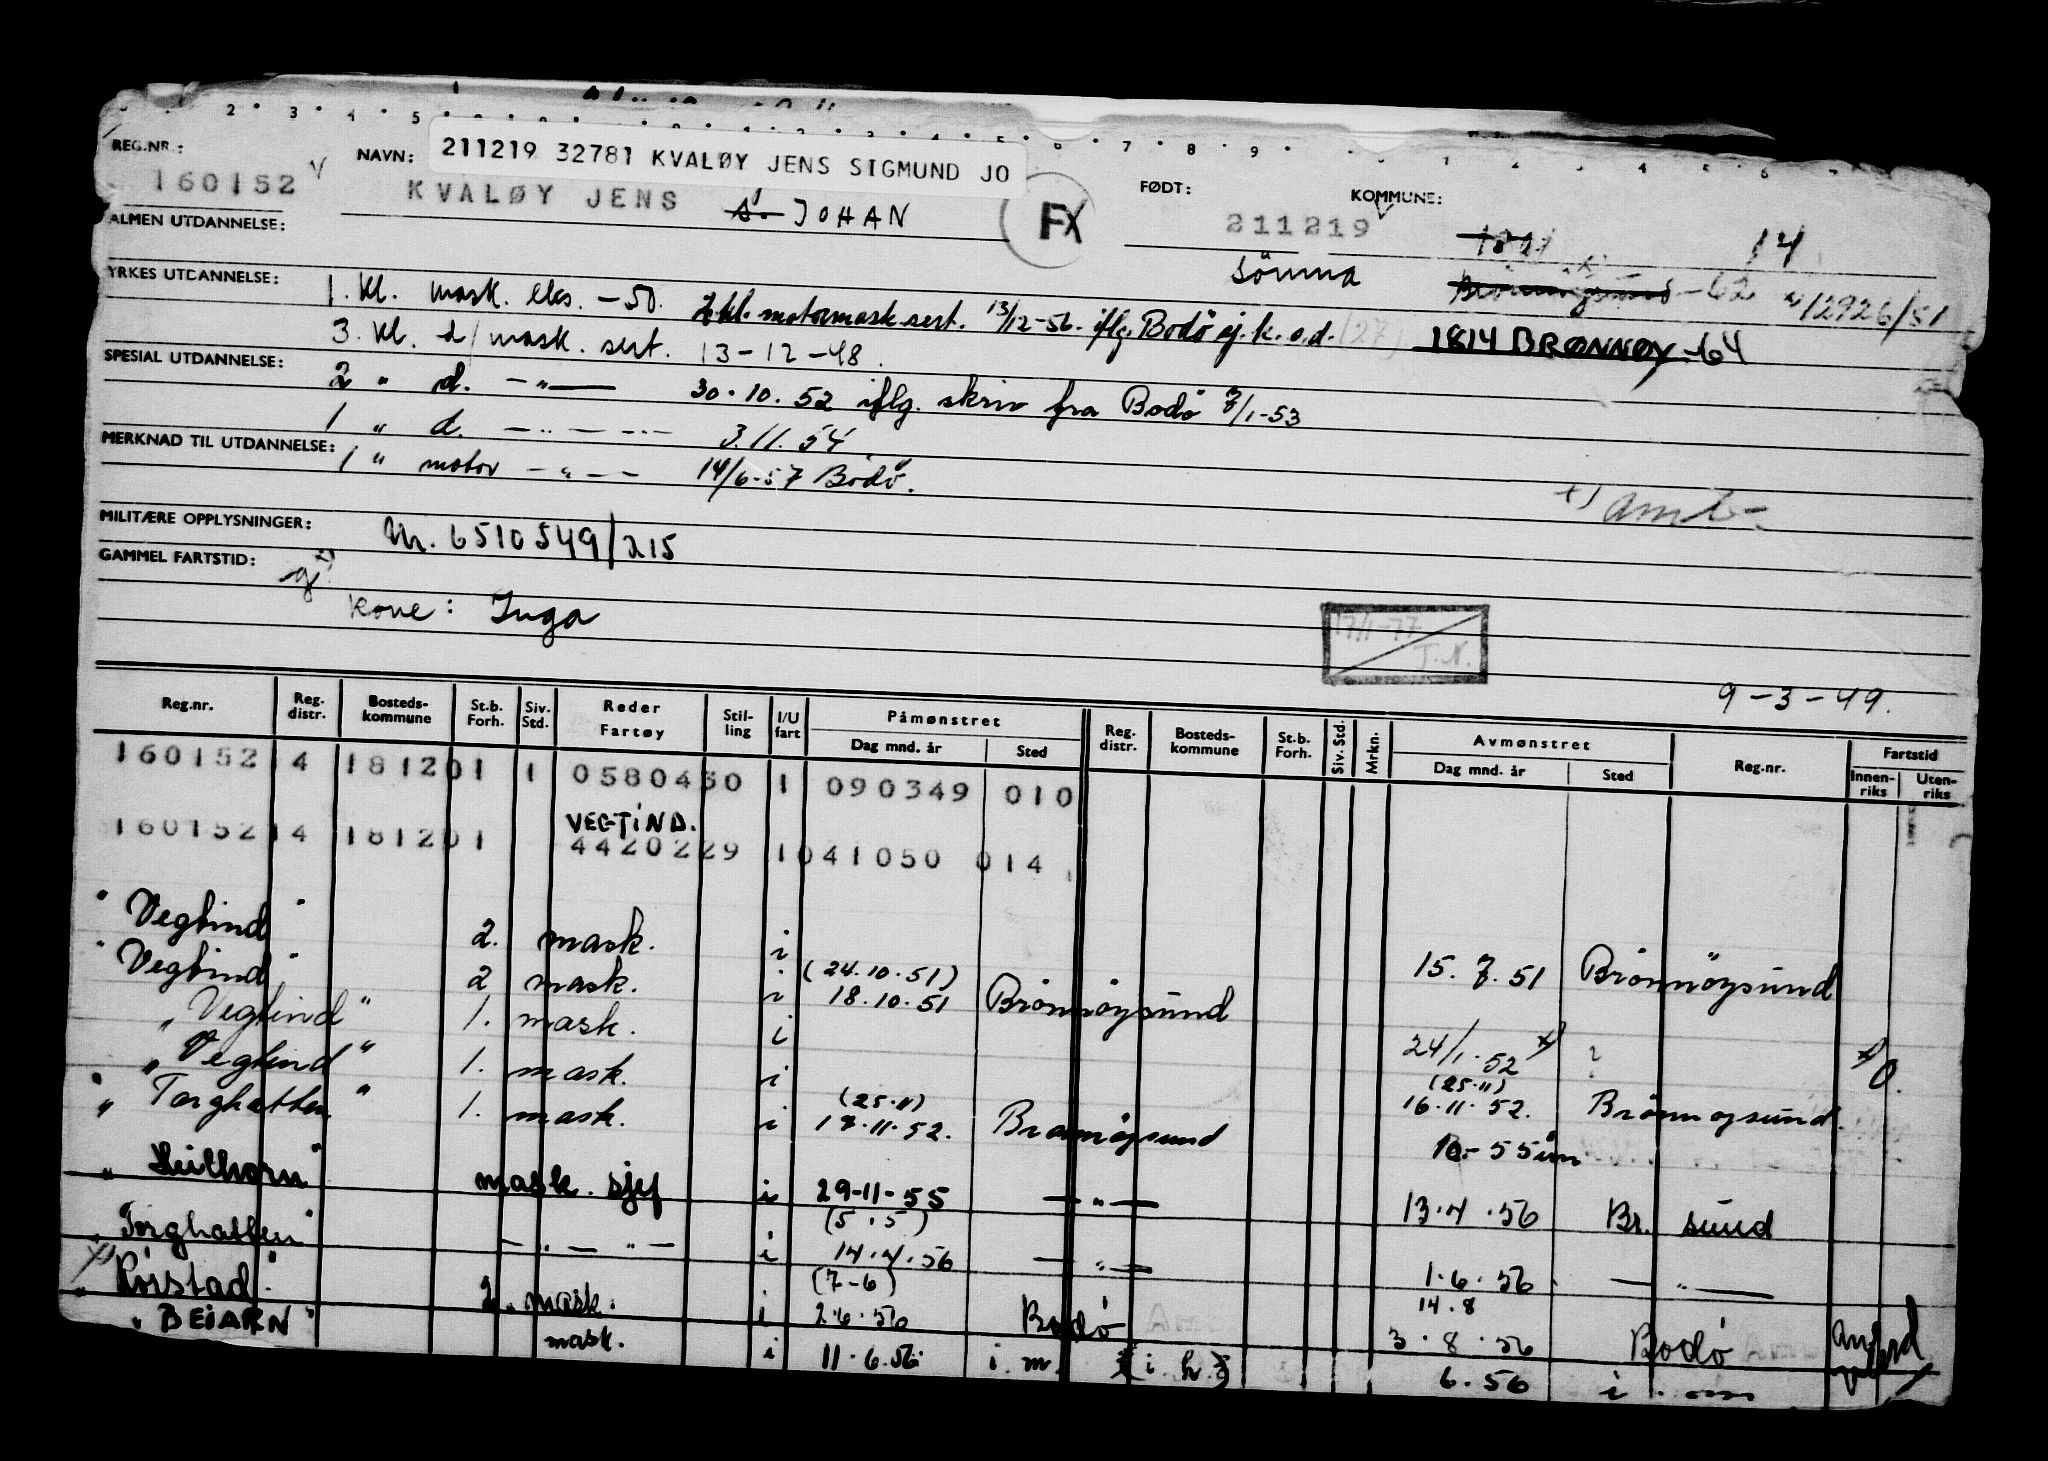 REG.NR.: NAVN: 211219 32781 KVALØY JENS SIGMUND JO FØDT: KOMMUNE:
160152 KVALØY JENS S. JOHAN FX 211219 14
ALMEN UTDANNELSE: Sömna Brönnöysund -62 2926/51
YRKES UTDANNELSE: 1. kl. mask. eks. -50. 2.kl. motormask.sert. 13/12-56. iflg. Bodö sj.k. o.d. (27) 1814 BRØNNØY -64
3. kl. d/mask. sert. 13-12-48.
SPESIAL UTDANNELSE: 2 " d. -"- 30.10.52 iflg. skriv fra Bodö 7/1-53
1 " d. -"- 3.11.54
MERKNAD TIL UTDANNELSE: 1 " motor -"- 14/6-57 Bodö.
MILITÆRE OPPLYSNINGER: Nr. 6510549/215
GAMMEL FARTSTID:
Kone: Inga
17/1-77 T.N.
9-3-49.
Reg.nr. Reg. distr. Bosteds-kommune St.b. Forh. Siv. Std. Reder Fartøy Stil-ling I/U fart Påmønstret Dag mnd. år Sted Reg. distr. Bosteds-kommune St.b. Forh. Siv. Std. Mrkn. Avmønstret Dag mnd. år Sted Reg.nr. Fartstid Innen-riks Uten-riks
160152 14 181201 1 0580430 1 090349 010
VEGTIND.
160152 14 181201 4420229 1 041050 014
"Vegtind" 2. mask. i 15.7.51 Brönnöysund
"Vegtind" 2 mask. i (24.10.51) 18.10.51 Brönnöysund
"Vegtind" 1. mask. i 24/1.52 x) ? x) 0.
"Vegtind" 1. mask. i (25.11) 16.11.52. Brönnöysund.
"Torghatten" 1. mask. i (25.11) 17.11.52. Brönnöysund 10-55
"Heilhorn" mask. sjef i 29-11-55 -"- 13.4.56 Br. sund
"Torghatten" -"- -"- i (5.5) 14.4.56 -"- 1.6.56 -"-
"Röstad" 2. mask. i (7-6) 2.6.56 Bodö 14.8 3.8.56 Bodö
"BEIARN" mask. i 11.6.56 i.m. (i h.) 6.56